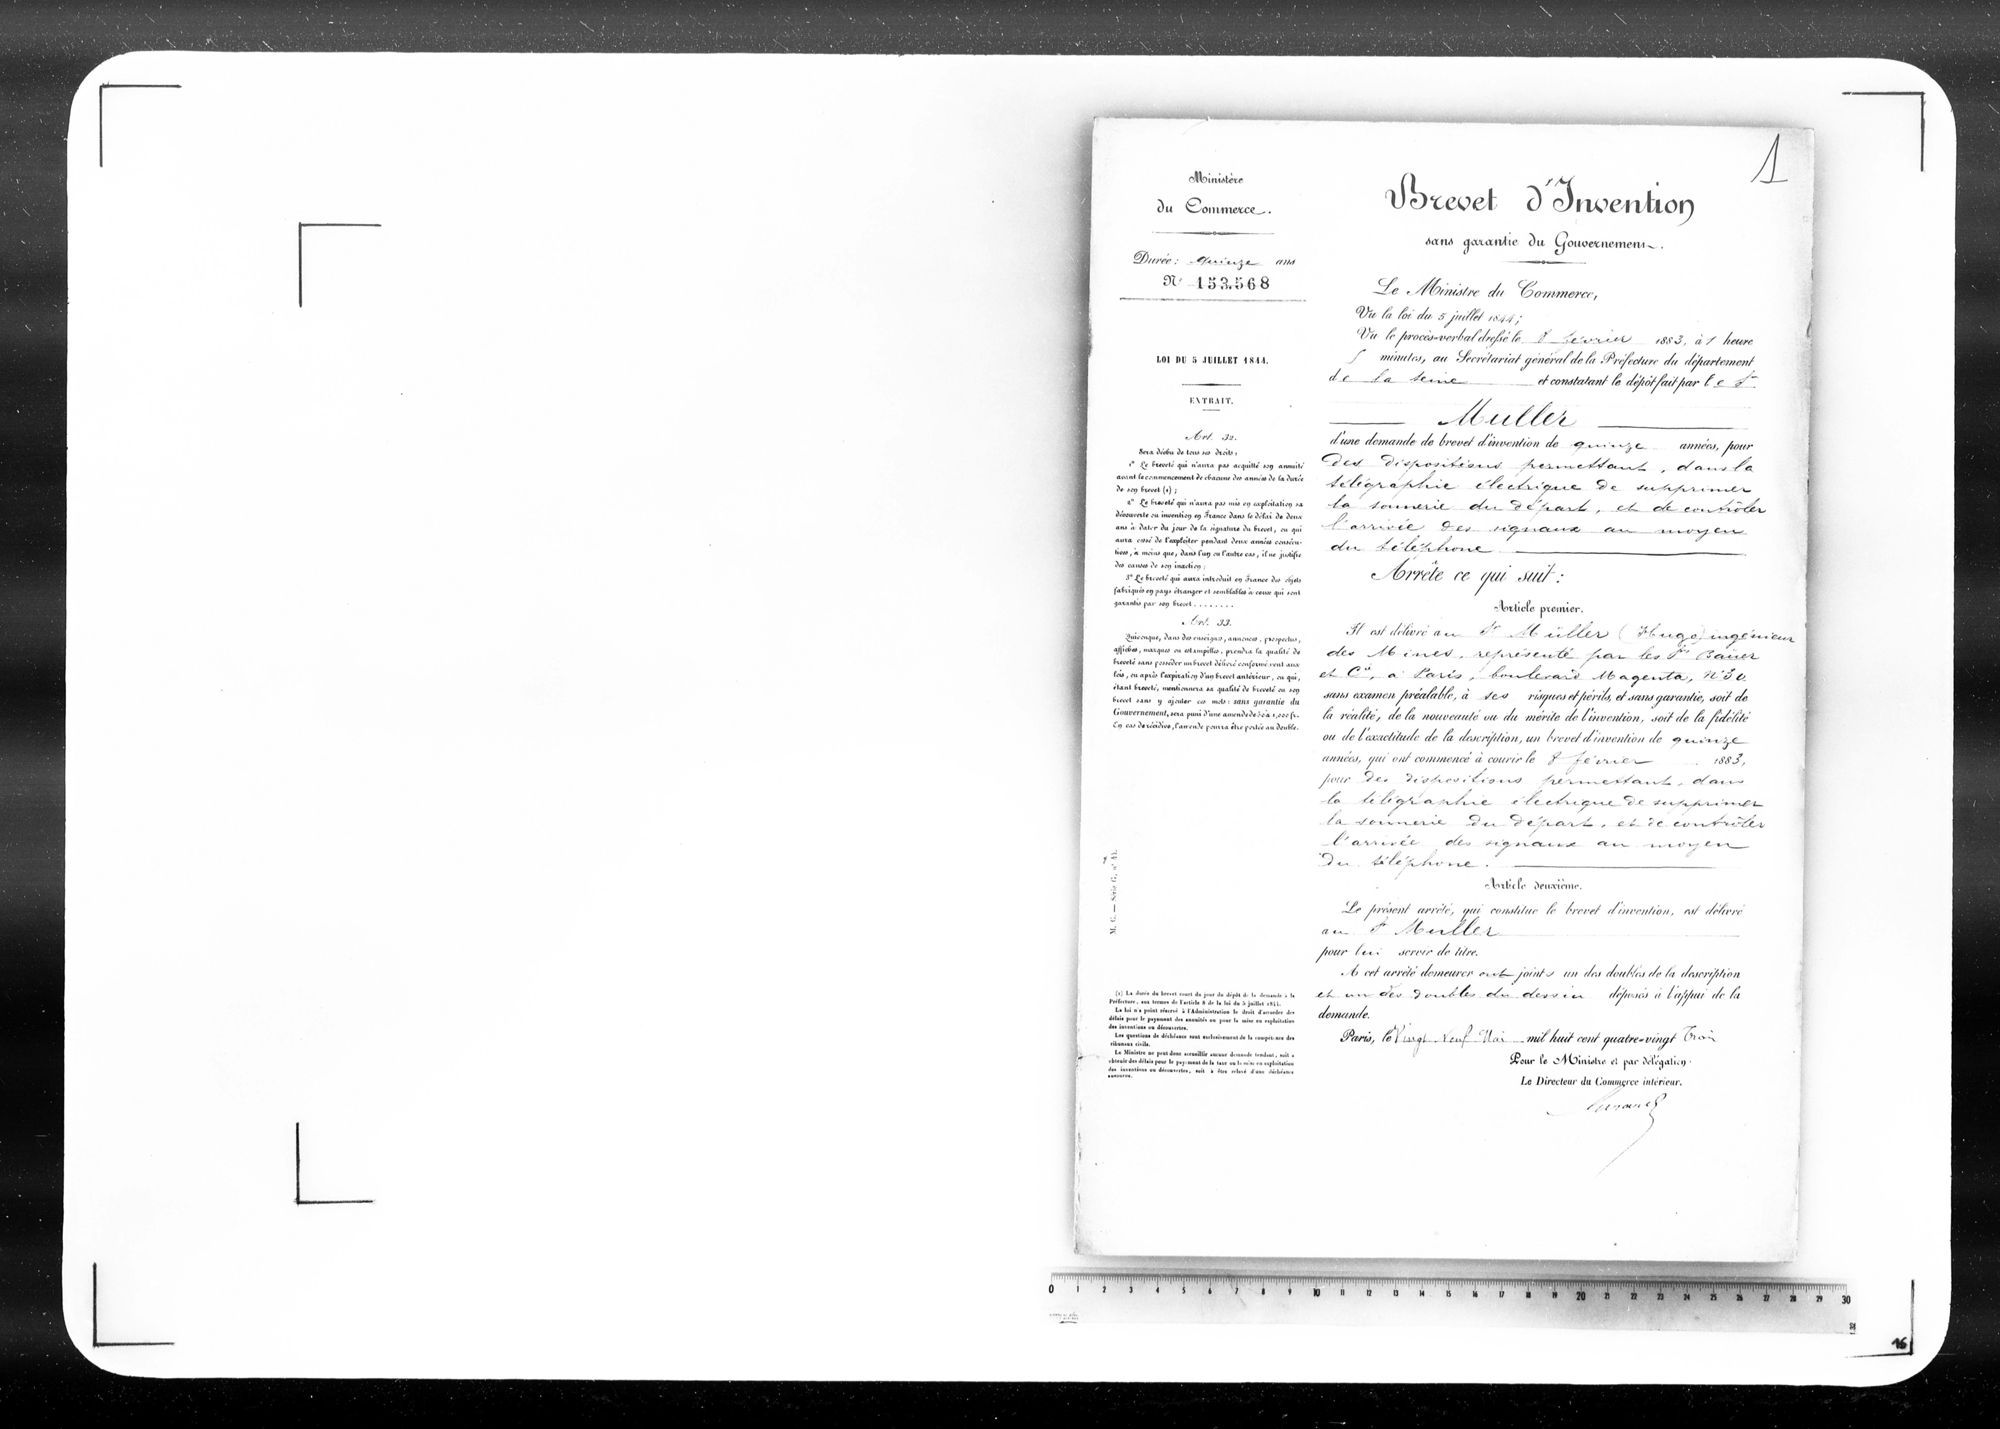 1
Ministère
du Commerce.
Durée: quinze ans
N° 153.568
LOI DU 5 JUILLET 1844.
EXTRAIT.
Art. 32.
Sera déchu de tous ses droits:
1° Le breveté qui n'aura pas acquitté son annuité
avant le commencement de chacune des années de la durée
de son brevet (1);
2° Le breveté qui n'aura pas mis en exploitation sa
découverte ou invention en France dans le délai de deux
ans à dater du jour de la signature du brevet, ou qui
aura cessé de l'exploiter pendant deux années consécu-
tives, à moins que, dans l'un ou l'autre cas, il ne justifie
des causes de son inaction;
3° Le breveté qui aura introduit en France des objets
fabriqués en pays étranger et semblables à ceux qui sont
garantis par son brevet ........
Art. 33.
Quiconque, dans des enseignes, annonces, prospectus,
affiches, marques ou estampilles, prendra la qualité de
breveté sans posséder un brevet délivré conformément aux
lois, ou après l'expiration d'un brevet antérieur, ou qui,
étant breveté, mentionnera sa qualité de breveté ou son
brevet sans y ajouter ces mots: sans garantie du
Gouvernement, sera puni d'une amende de 50 à 1,000 fr.
En cas de récidive, l'amende pourra être portée au double.
M. C. — Série G, n° 41.
(1) La durée du brevet court du jour du dépôt de la demande à la
Préfecture, aux termes de l'article 8 de la loi du 5 juillet 1844.
La loi n'a point réservé à l'Administration le droit d'accorder des
délais pour le payement des annuités ou pour la mise en exploitation
des inventions ou découvertes.
Les questions de déchéance sont exclusivement de la compétence des
tribunaux civils.
Le Ministre ne peut donc accueillir aucune demande tendant, soit à
obtenir des délais pour le payement de la taxe ou la mise en exploitation
des inventions ou découvertes, soit à être relevé d'une déchéance
encourue.
Brevet d'Invention
sans garantie du Gouvernement.
Le Ministre du Commerce,
Vu la loi du 5 juillet 1844;
Vu le procès-verbal dressé le 8 février 1883, à 1 heure
5 minutes, au Secrétariat général de la Préfecture du département
de la Seine et constatant le dépôt fait par le Sr
Muller
d'une demande de brevet d'invention de quinze années, pour
des dispositions permettant, dans la
télégraphie électrique de supprimer
la sonnerie du départ, et de contrôler
l'arrivée des signaux au moyen
du téléphone
Arrête ce qui suit:
Article premier.
Il est délivré au Sr Müller (Hugo) ingénieur
des Mines, représenté par les Srs Baüer
et Cie, à Paris, boulevard Magenta, N° 30
sans examen préalable, à ses risques et périls, et sans garantie, soit de
la réalité, de la nouveauté ou du mérite de l'invention, soit de la fidélité
ou de l'exactitude de la description, un brevet d'invention de quinze
années, qui ont commencé à courir le 8 février 1883,
pour des dispositions permettant, dans
la télégraphie électrique de supprimer
la sonnerie du départ, et de contrôler
l'arrivée des signaux au moyen
du téléphone.
Article deuxième.
Le présent arrêté, qui constitue le brevet d'invention, est délivré
au Sr Muller
pour lui servir de titre.
A cet arrêté demeurer ont joints un des doubles de la description
et un des doubles du dessin déposés à l'appui de la
demande.
Paris, le Vingt Neuf Mai mil huit cent quatre-vingt Trois
Pour le Ministre et par délégation.
Le Directeur du Commerce intérieur.
0 1 2 3 4 5 6 7 8 9 10 11 12 13 14 15 16 17 18 19 20 21 22 23 24 25 26 27 28 29 30
16